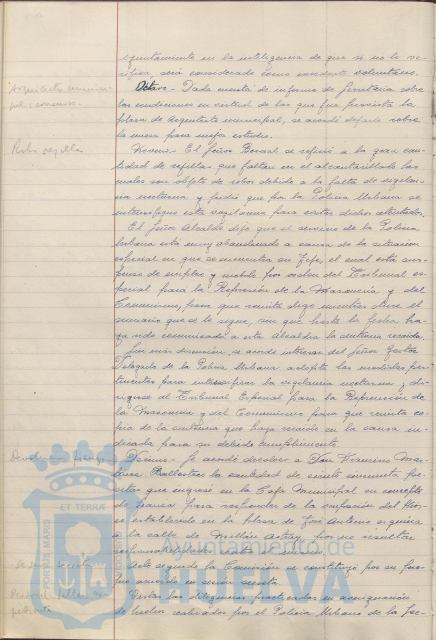 Ayuntamiento en la inteligencia de que si no lo ve-
rifica, será considerado como excedente voluntario.
Arquitecto munici-
pal: concurso.
Octavo.- Dada cuenta de informe de Secretaría sobre
las condiciones en virtud de las que fue provista la
plaza de Arquitecto municipal, se acordó dejarlo sobre
la mesa para mejor estudio.
Robo rejilla
Noveno.- El Señor Bernal se refirió a la gran can-
tidad de rejillas que faltan en el alcantarillado las
cuales son objeto de robos debido a la falta de vigilan-
cia nocturna y pidió que por la Policía Urbana se
intensifique esta vigilancia para evitar dichos atentados.
El Señor Alcalde dijo que el servicio de la Policía
Urbana está muy abandonado a causa de la situación
especial en que se encuentra su Jefe, el cual está sus-
penso de empleo y sueldo por orden del Tribunal es-
pecial para la Represión de la Masonería y del
Comunismo, para que remita digo mientras dure el
sumario que se le sigue, sin que hasta la fecha ha-
ya sido comunicada a esta Alcaldía la sentencia recaída.
Sin más discusión, se acordó interesar del Señor Gestor
Delegado de la Policía Urbana adopte las medidas per-
tinentes para intensificar la vigilancia nocturna y di-
rigirse al Tribunal Especial para la Represión de
la Masonería y del Comunismo para que remita co-
pia de la sentencia que haya recaído en la causa in-
dicada para su debido cumplimiento.
Devolución fianza
Décimo.- Se acordó devolver a Don Francisco Mar-
tínez Ballesteros la cantidad de ciento cincuenta pe-
setas que ingresó en la Caja Municipal en concepto
de fianza para responder de la explotación del Kios-
co establecido en la plaza de José Antonio esquina
a la calle de Millán Astray, por no resultar
responsabilidades contra el mismo.
Se sesión secreta
Acto seguido la Comisión se constituyó por su pro-
pio acuerdo en sesión secreta.
Personal:
Vistas las diligencias practicadas en averiguación
de hechos realizados por el Policía Urbano de la Jec-
ET TERRÆ
PORTUS MARIS
Ayuntamiento de
HUELVA